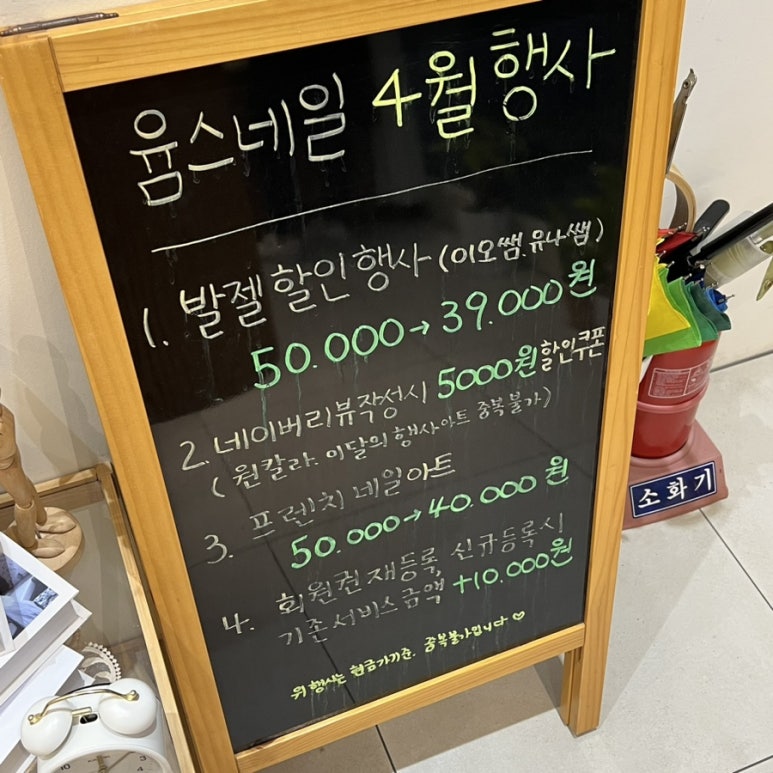 윰스네일 4월 행사
1. 발젤 할인행사 (이오쌤.유나쌤)
50.000→39.000원
2. 네이버리뷰작성시 5000원 할인쿠폰
(원칼라. 이달의 행사아트 중복불가)
3. 프렌치 네일아트
50.000→40.000원
4. 회원권 재등록, 신규등록시
기존 서비스금액 +10.000원
위 행사는 현금가기준. 중복불가입니다♡
소화기